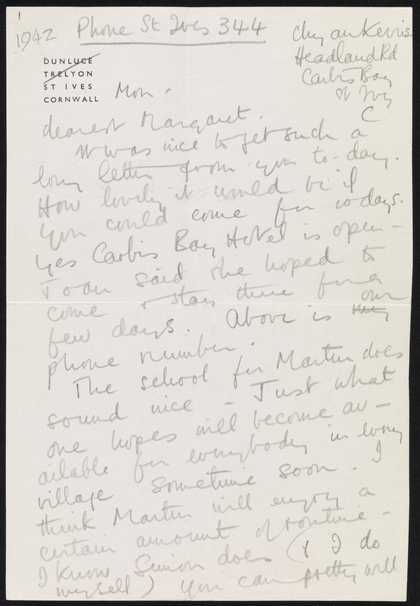 1942
Phone St Ives 344
Chy an Kerris
Headland Rd
Carbis Bay
St Ives
C
DUNLUCE
TRELYON
ST IVES
CORNWALL
Mon.
dearest Margaret.
It was nice to get such a
long letter from you to-day.
How lovely it would be if
you could come for 10 days.
Yes Carbis Bay Hotel is open –
Joan said she hoped to
come & stay there for a
few days. Above is our
phone number.
The school for Martin does
sound nice – Just what
one hopes will become av-
ailable for everybody in every
village sometime soon. I
think Martin will enjoy a
certain amount of routine –
I know Simon does (& I do
myself) You can pretty well